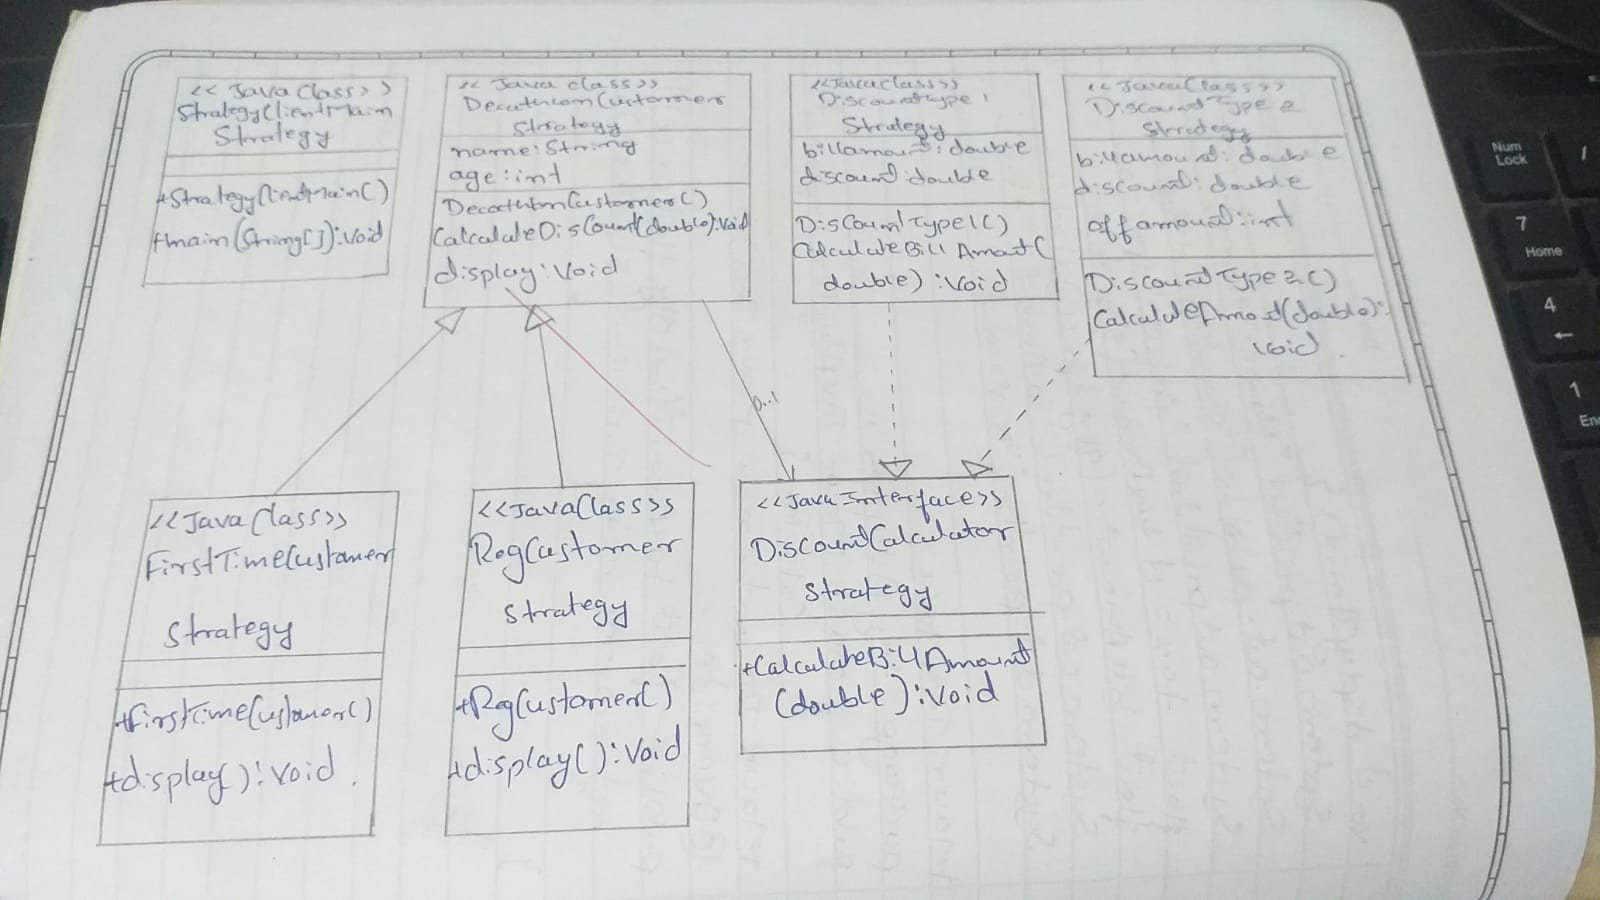 <<Java Class>>
StrategyClientMain
Strategy
+StrategyClientMain()
+main(String[]):Void
<<Java class>>
DecathlonCustomer
Strategy
name:String
age:int
DecathlonCustomer()
CalculateDisCount(double):Void
display:Void
<<JavaClass>>
DiscountType 1
Strategy
billamount:double
discount:double
DisCountType1()
CalculateBillAmount(
double):Void
<<JavaClass>>
DiscountType 2
Strategy
billamount:double
discount:double
offamount:int
DiscountType2()
CalculateAmount(double):
Void
0..1
<<JavaClass>>
FirstTimeCustomer
Strategy
+FirstTimeCustomer()
+display():Void
<<JavaClass>>
RegCustomer
Strategy
+RegCustomer()
+display():Void
<<Java Interface>>
DisCountCalculator
Strategy
+CalculateBillAmount
(double):Void
Num
Lock
/
7
Home
4
←
1